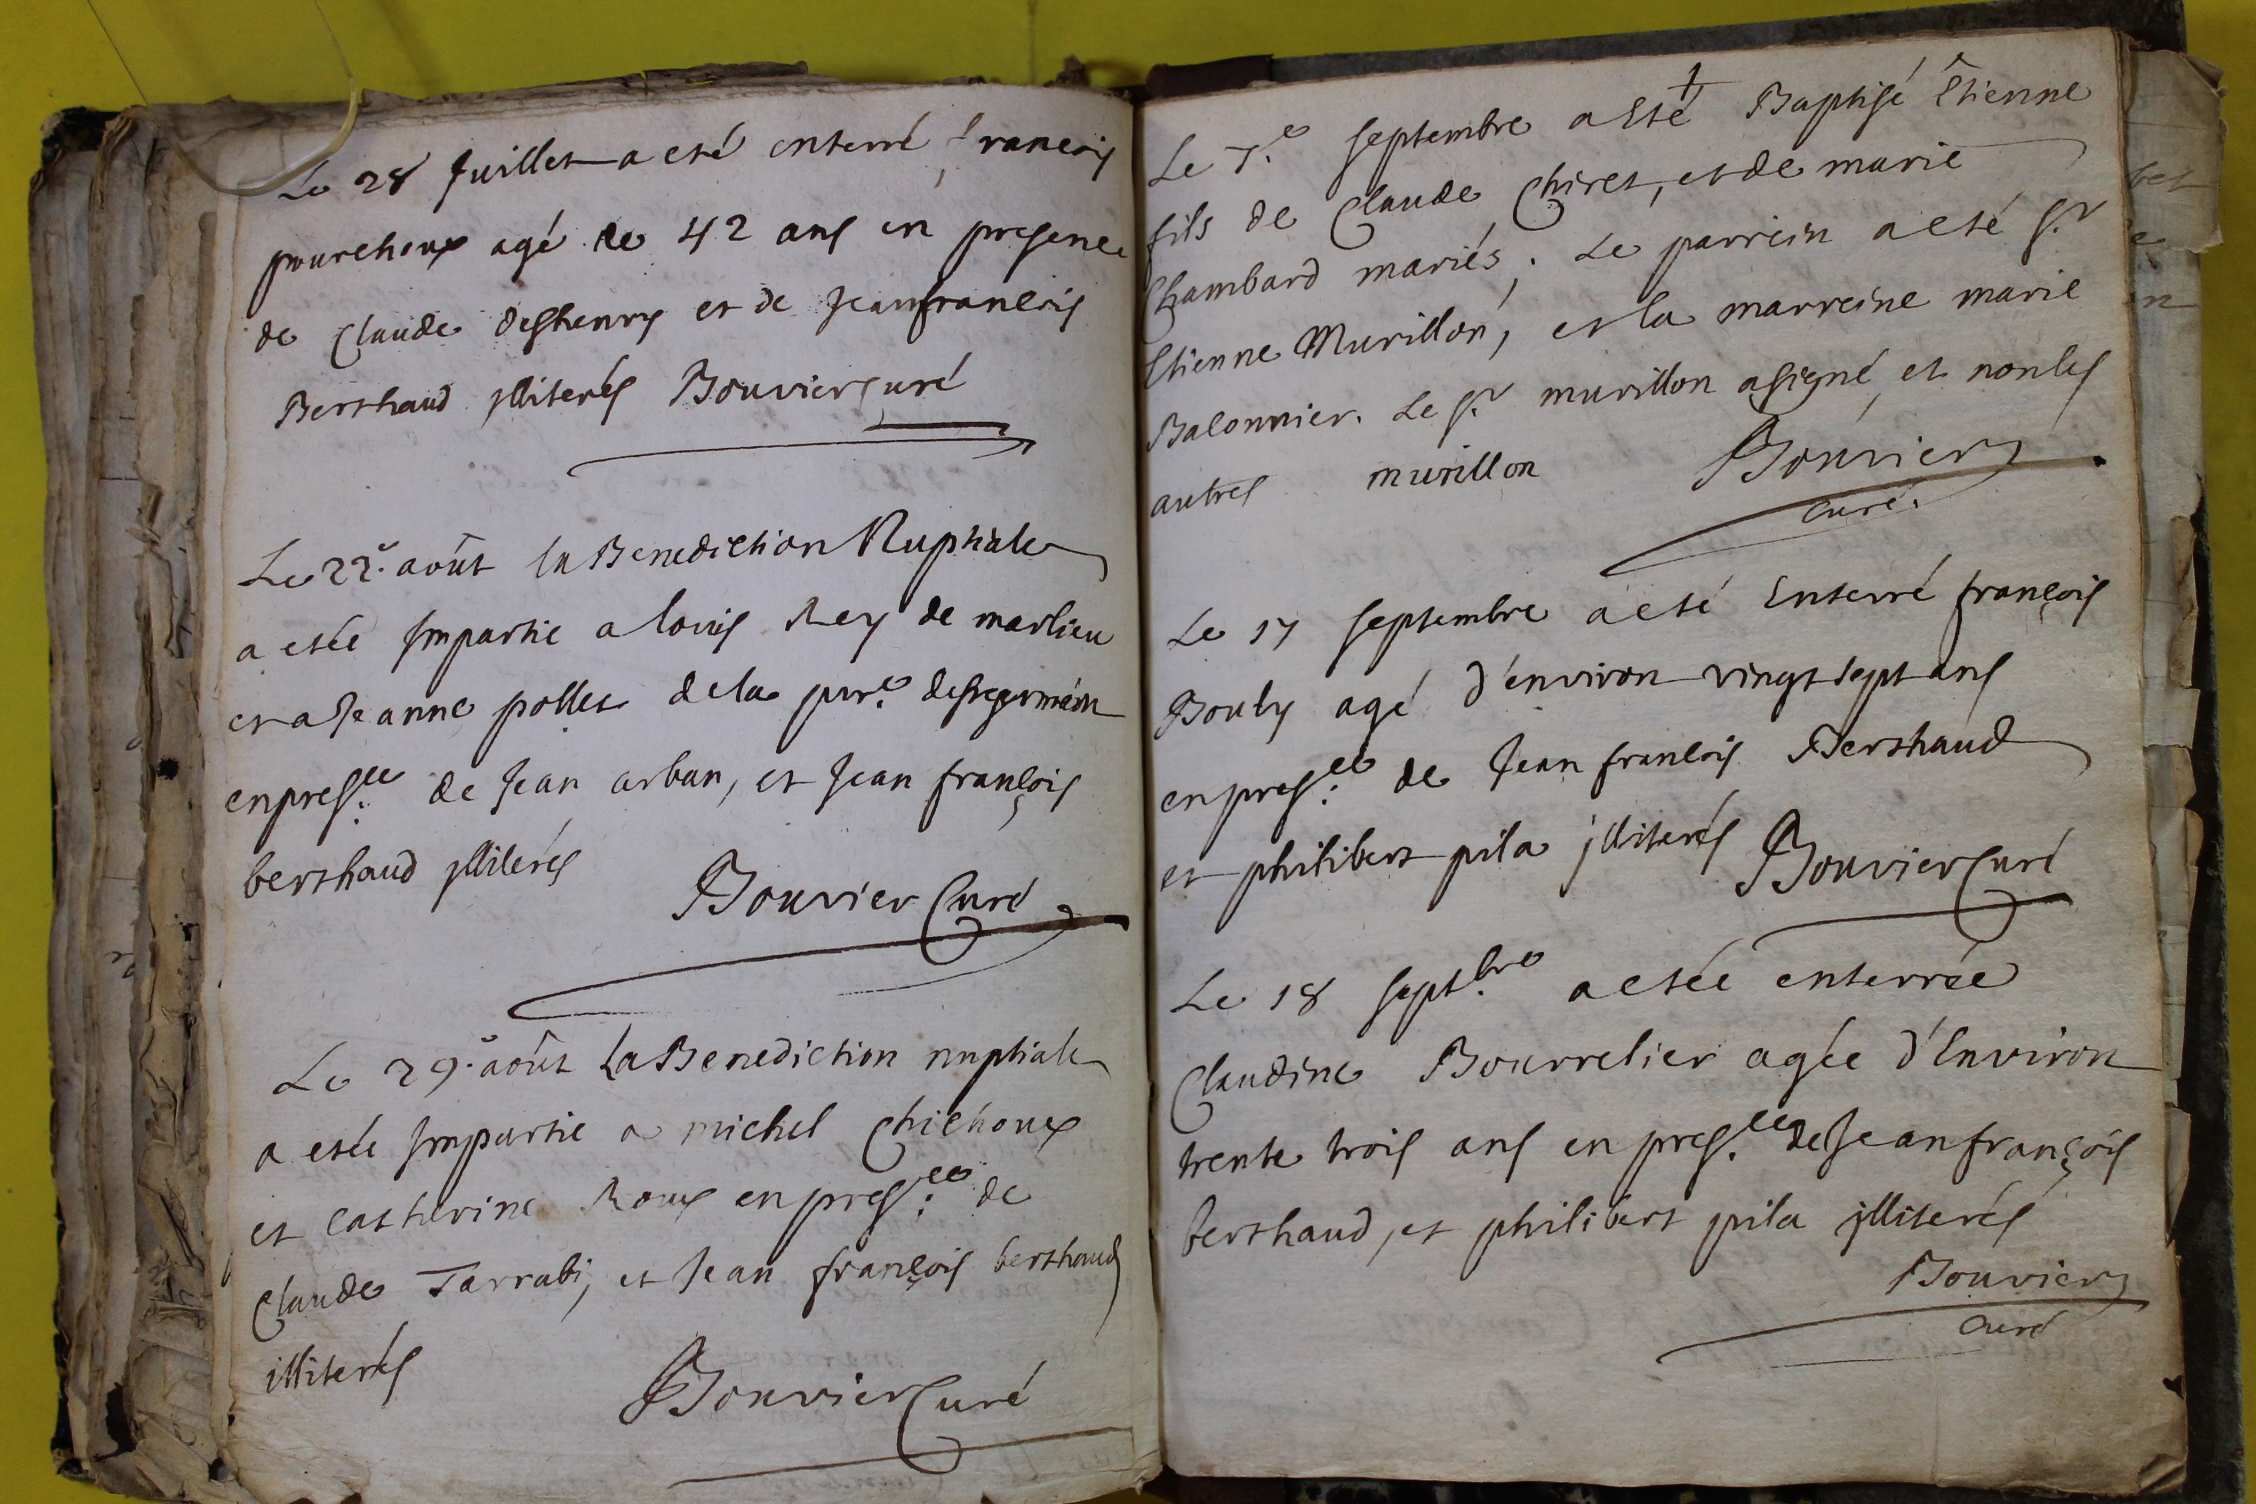 Le 28 Juillet a eté enterré francois
pourchoux agé de 42 ans en presence
de Claude Deshenry et de Jeanfrancois
Berthaud jlliterés Bouvier Curé
Le 22.e août la Benediction Nuptiale
a etée Jmpartie a louis Rey de marlieu
et a Jeanne pollet de la par.e
en pres.ce de Jean arban, et Jean françois
berthaud jlliterés
Bouvier Curé
Le 29.e août La Benediction nuptiale
a etée Jmpartie a michel Chichoux
et Catherine Roux en pres.ce de
Claude Tarrabi, et Jean françois berthaud
illiterés
Bouvier Curé
Le 7.e septembre a Eté Baptisé Etienne
fils de Claude Chiret, et de marie
Chambard mariés. Le parrein a eté s.r
Etienne Murillon, et la marreine marie
Balonnier. Le s.r murillon a signé, et non les
autres murillon Bouvier
Curé.
Le 17 septembre a eté Enterré françois
Bouly agé d'environ vingt sept ans
en pres.ce de Jean francois Berthaud
et philibert pila jlliterés Bouvier Curé
Le 18 sept.bre a etée enterrée
Claudine Bourrelier agée d'Environ
trente trois ans en pres.ce de Jean françois
berthaud, et philibert pila jlliterés
Bouvier
Curé